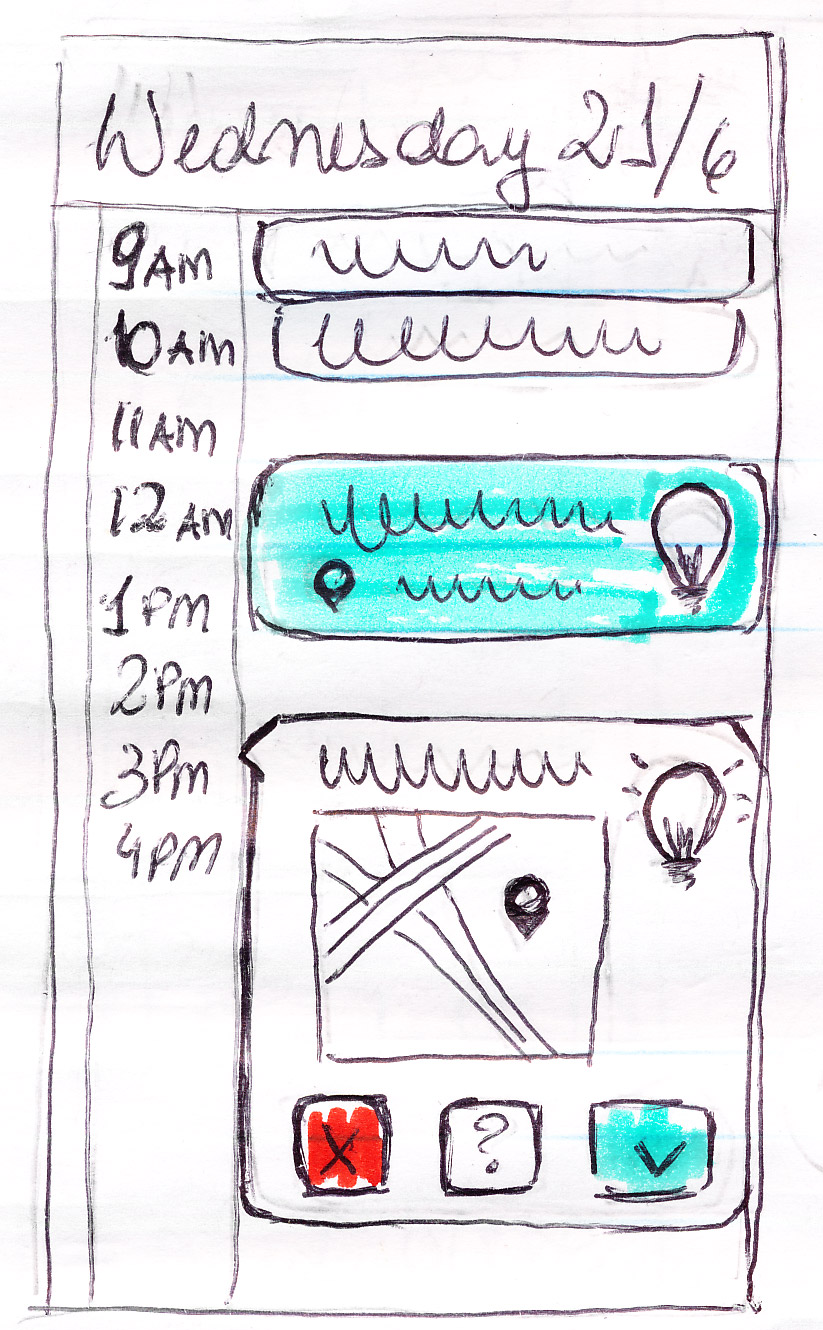 Wednesday 21/6
9AM
10AM
11AM
12AM
1PM
2PM
3PM
4PM
X ?